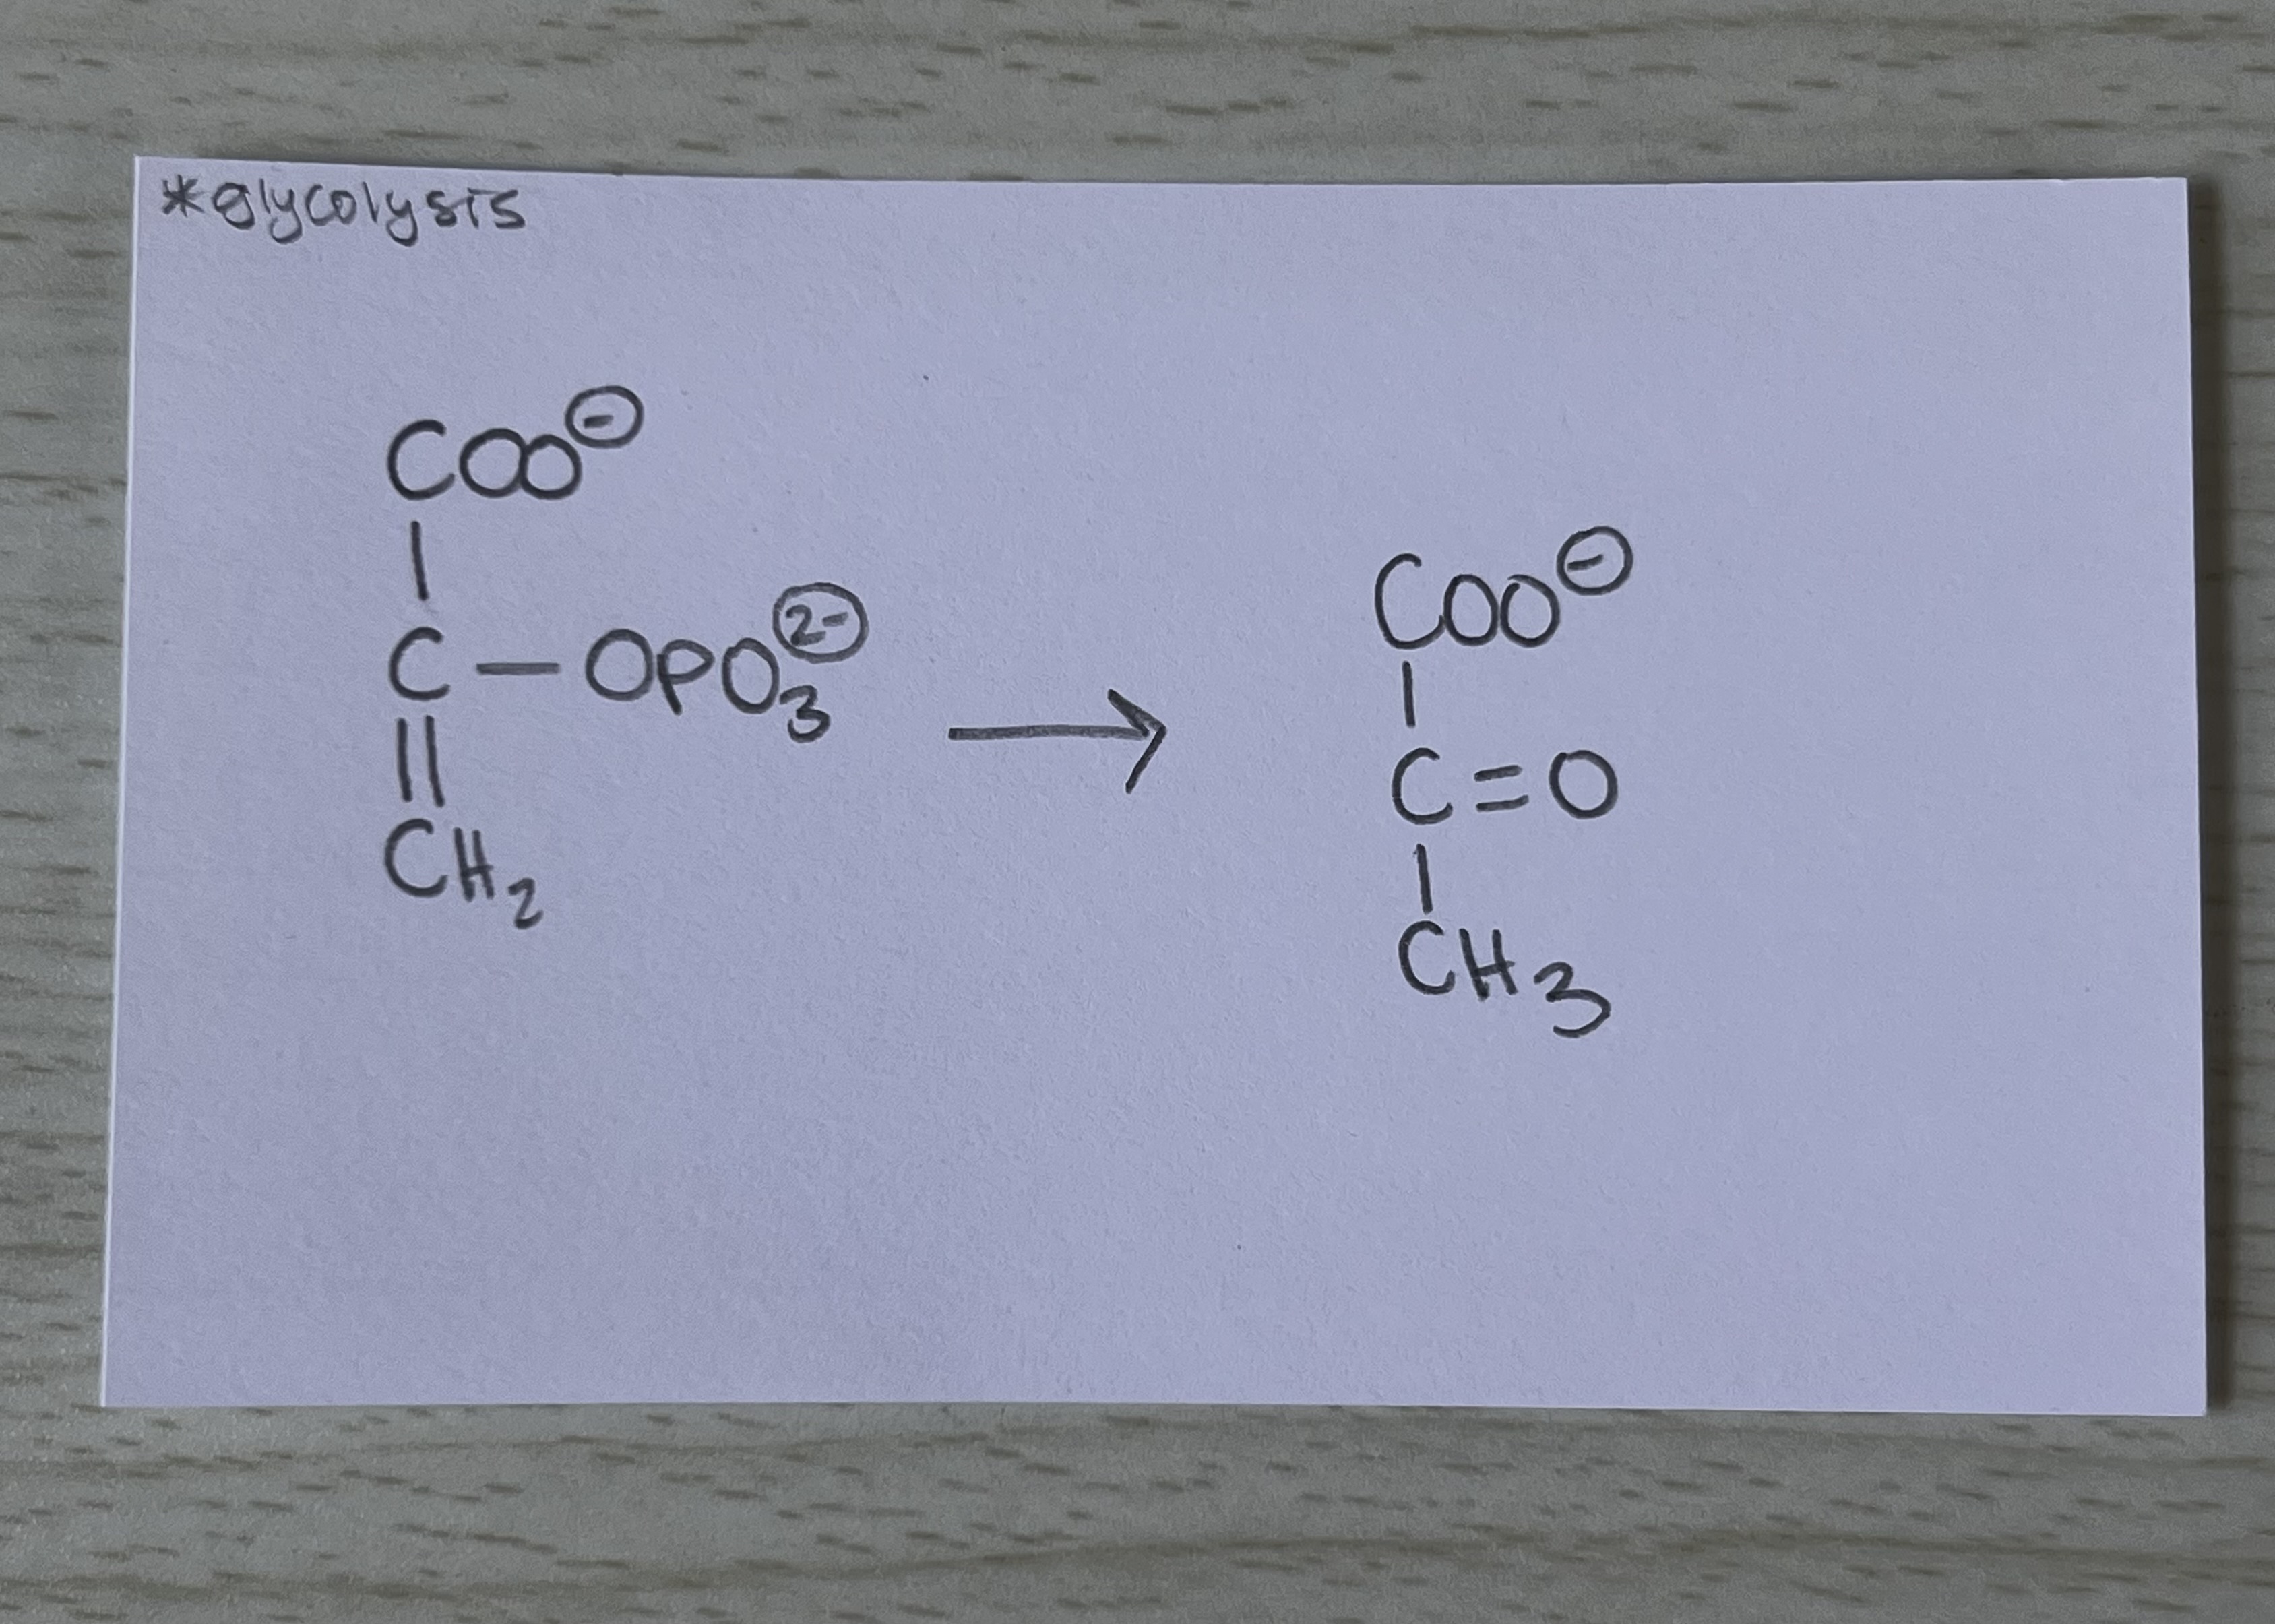 *glycolysis
COO⊖
|
C — OPO₃②⁻
||
CH₂
→
COO⊖
|
C = O
|
CH₃